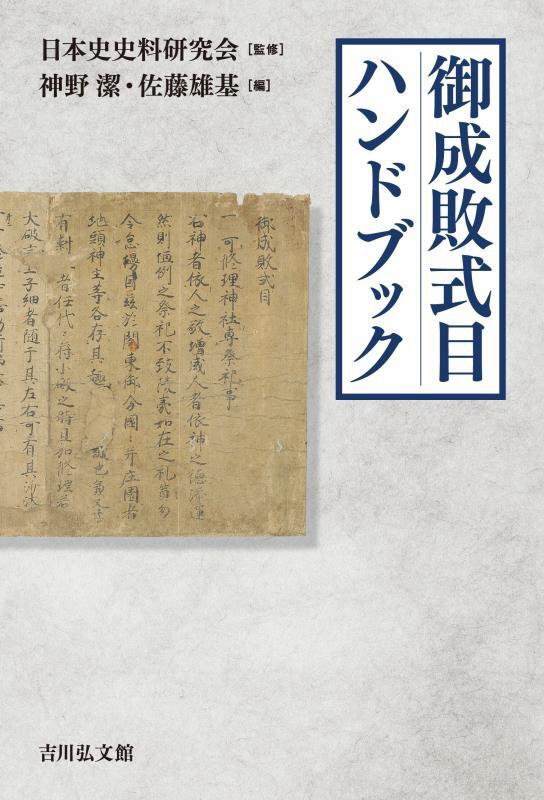 御成敗式目
ハンドブック
日本史史料研究会[監修]
神野 潔・佐藤雄基[編]
御成敗式目
一 可修理神社専祭祀事
右神者依人之敬増威人者依神之徳添運
然則恒例之祭祀不致陵夷如在之礼奠勿
令怠慢因茲於関東御分国々并庄園者
地頭神主等各存其趣
有封
者任代々符小破之時且加修理若
大破
上子細者随于其左右可有其沙汰
吉川弘文館